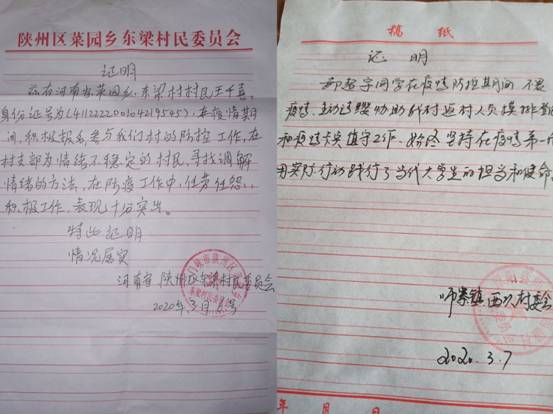 陕州区菜园乡东梁村民委员会
证明
兹有河南省菜园乡东梁村村民王千喜,
身份证号为(411222200104219505),在疫情期
间,积极报名参与我们村的防控工作,在
村支部为情绪不稳定的村民,寻找调解
情绪的方法,在防疫工作中,任劳任怨,
积极工作,表现十分突出。
特此证明
情况属实
河南省 陕州区东梁村民委员会
2020年3月 号
稿 纸
证 明
宇同学在疫情防控期间不畏
疫情,主动请缨协助我村返村人员摸排
和疫情卡点值守工作,始终坚持在疫情第一
用实际行动践行了当代大学生的担当和使命
师寨镇 村委会
2020.3.7
年 月 日